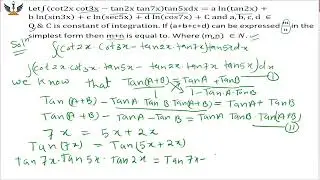 Let ∫(cot2x cot3x − tan2x tan7x)tan5xdx = a ln(tan2x) +
b ln(sin3x) + c ln(sec5x) + d ln(cos7x) + C and a, b, c, d ∈
Q & C is constant of integration. If (a+b+c+d) can be expressed in the
simplest form then m+n is equal to. Where (m,n) ∈ N.
Solⁿ ∫(cot2x cot3x − tan2x tan7x)tan5xdx
∫(cot2x cot3x tan5x − tan2x tan7x tan5x)dx
we know that Tan(A+B) = TanA + TanB
1 − TanA TanB
Tan(A+B) − TanA TanB Tan(A+B) = TanA + TanB
Tan(A+B) − TanA − TanB = TanA TanB Tan(A+B)
7x = 5x + 2x
Tan(7x) = Tan(5x+2x)
tan7x tan5x tan2x = Tan7x −